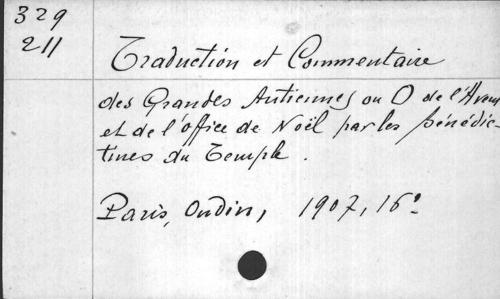 329
211
Traduction et Commentaire
des Grandes Antiennes ou O de l'Avent
et de l'office de Noël par les bénédic-
tines du Temple.
Paris, Oudin, 1907, 16°